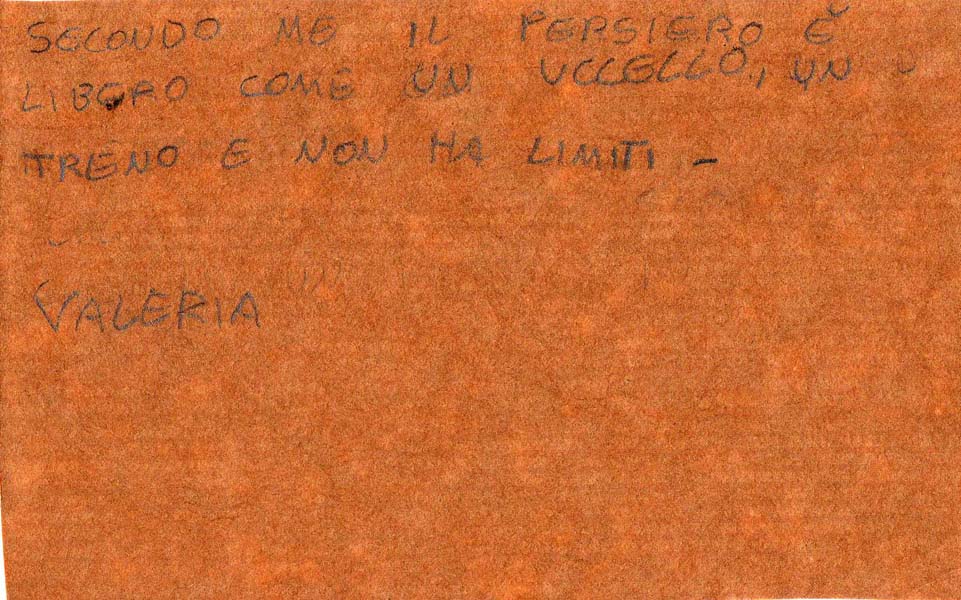 SECONDO ME IL PERSIERO È
LIBERO COME UN UCCELLO, UN
TRENO E NON HA LIMITI -
VALERIA